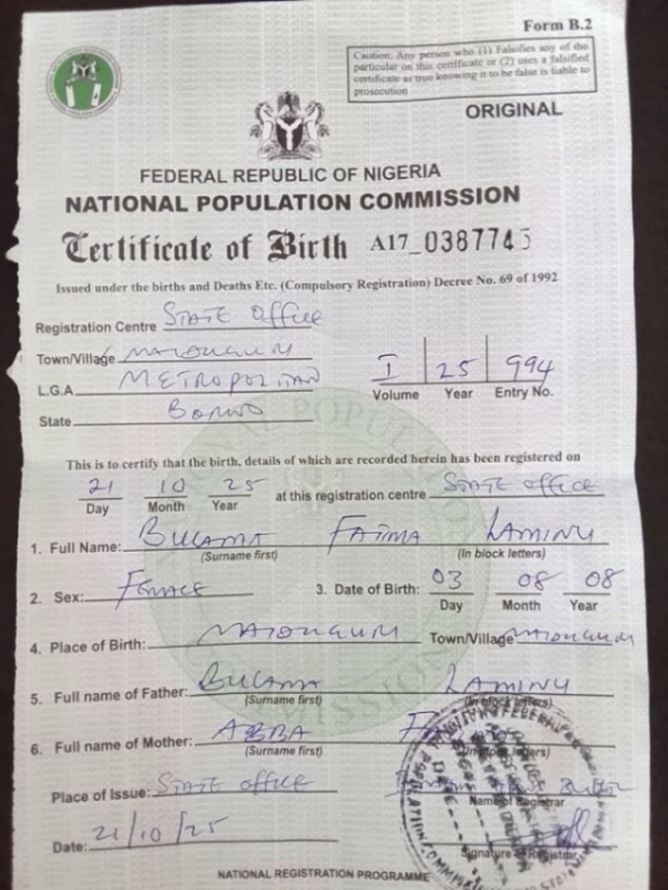 Form B.2
Caution: Any person who (1) Falsifies any of the
particular on this certificate or (2) uses a falsified
certificate as true knowing it to be false is liable to
prosecution
ORIGINAL
FEDERAL REPUBLIC OF NIGERIA
NATIONAL POPULATION COMMISSION
Certificate of Birth A17_0387745
Issued under the births and Deaths Etc. (Compulsory Registration) Decree No. 69 of 1992
Registration Centre STATE Office
Town/Village MAIDUGURI
L.G.A. METROPOLITAN
I 25 994
Volume Year Entry No.
State BORNO
This is to certify that the birth, details of which are recorded herein has been registered on
21 10 25 at this registration centre STATE office
Day Month Year
1. Full Name: BULAMA FATIMA LAMINU
(Surname first) (In block letters)
2. Sex: FEMALE 3. Date of Birth: 03 08 08
Day Month Year
4. Place of Birth: MAIDUGURI Town/Village MAIDUGURI
5. Full name of Father: BULAMA LAMINU
(Surname first) (In block letters)
6. Full name of Mother: ABBA
(Surname first) (In block letters)
Place of Issue: STATE office
Name of Registrar
Date: 21/10/25
Signature of Registrar
NATIONAL REGISTRATION PROGRAMME